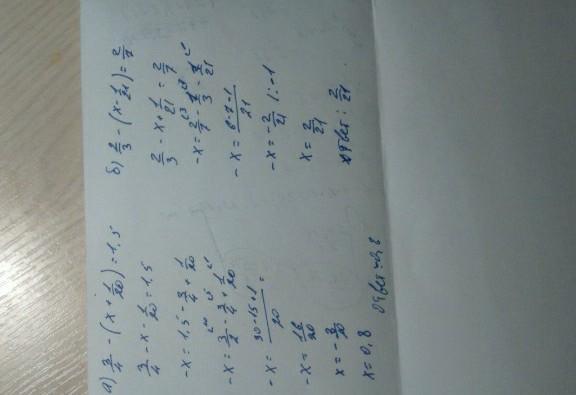 а) 3/4 - (x + 1/20) = 1,5
3/4 - x - 1/20 = 1,5
-x = 1,5 - 3/4 + 1/20
-x = 3/2 - 3/4 + 1/20
-x = (30-15+1)/20 =
-x = 16/20
x = -8/10
x = 0,8 Ответ: -0,8
б) 2/3 - (x - 1/21) = 2/7
2/3 - x + 1/21 = 2/7
-x = 2/7 - 1/3 - 1/21
-x = (6-7-1)/21
-x = -2/21 |:-1
x = 2/21
Ответ: 2/21.